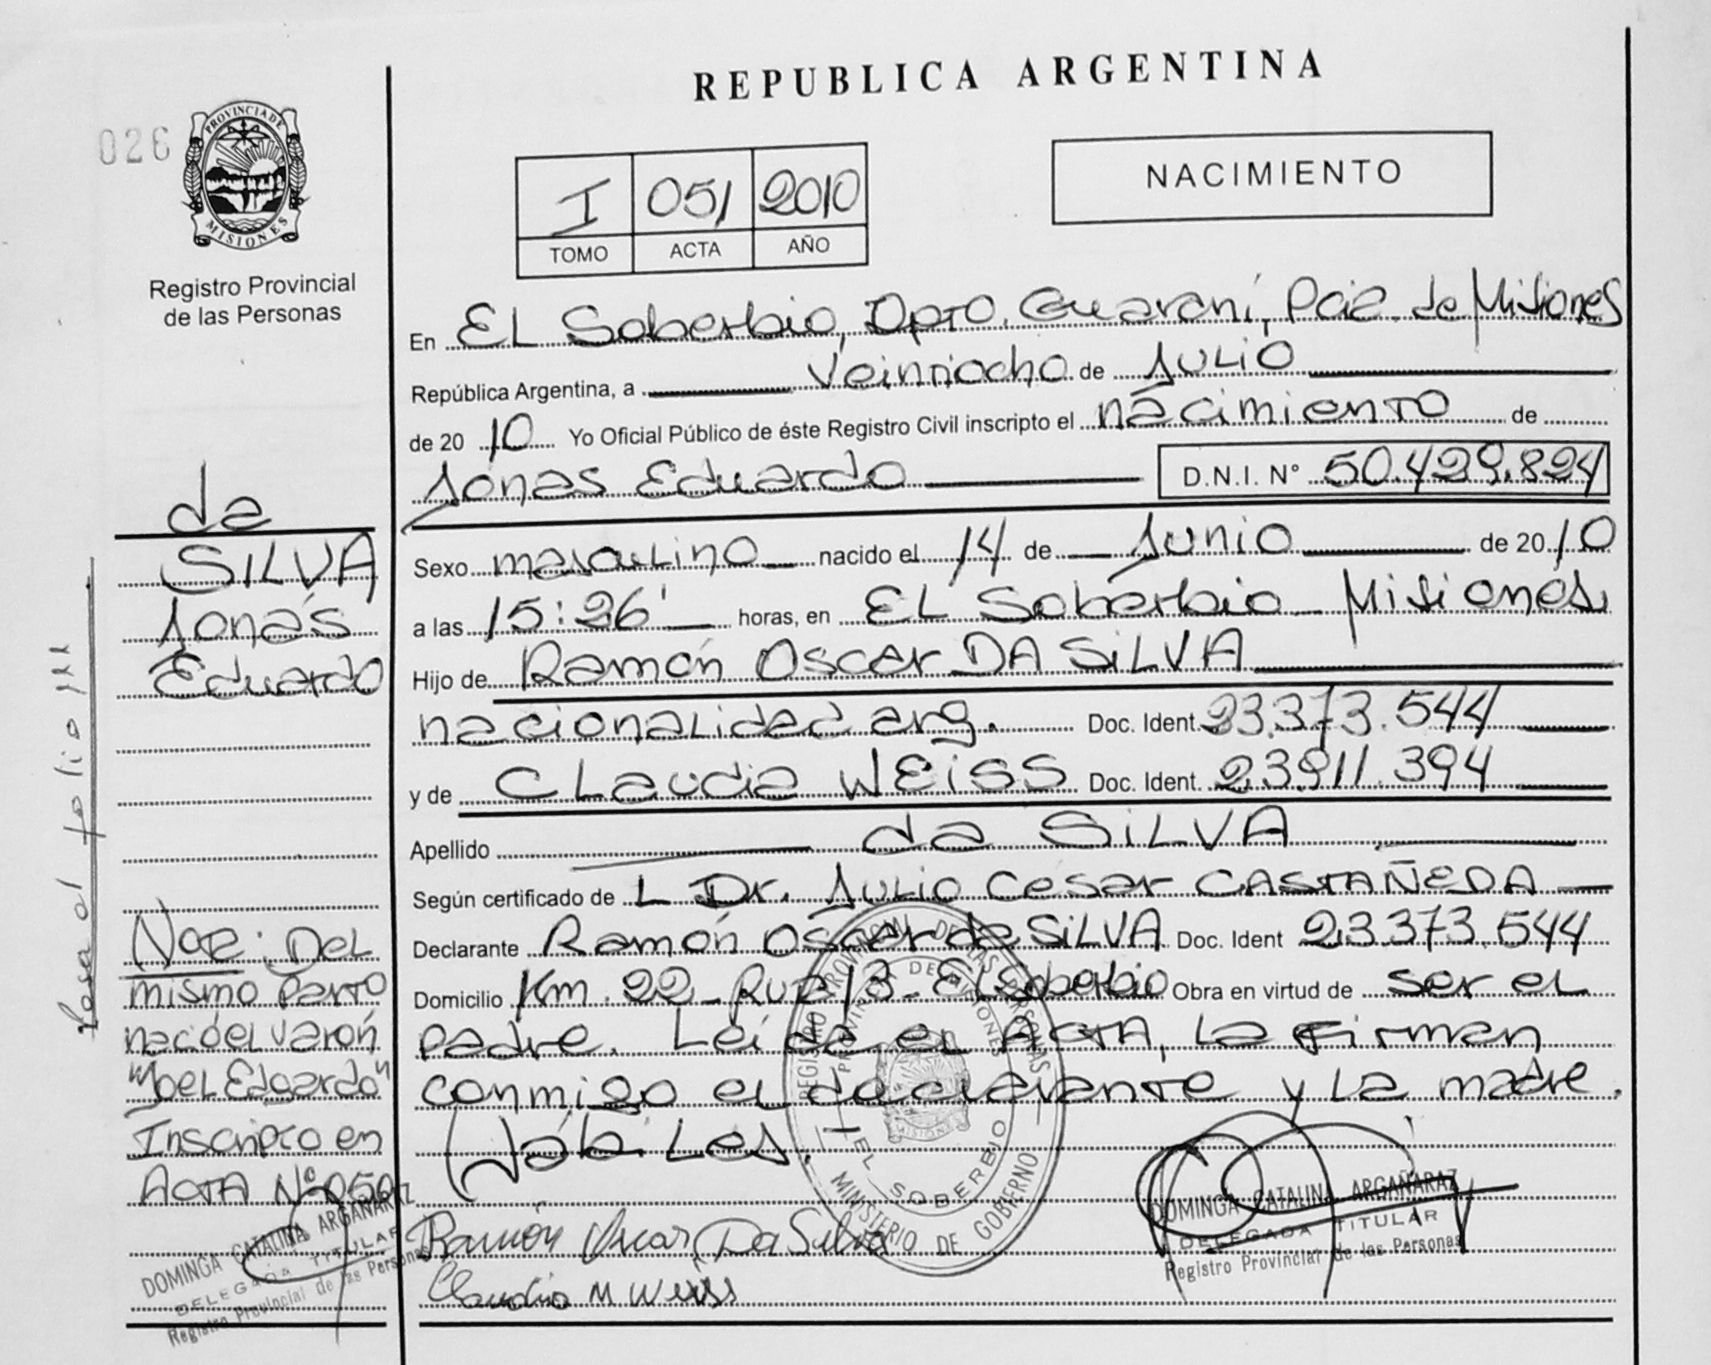 REPUBLICA ARGENTINA
026
PROVINCIA DE
MISIONES
Registro Provincial
de las Personas
I 051 2010
TOMO ACTA AÑO
NACIMIENTO
En EL Soberbio, Dpto. Guaraní, Pcia. de Misiones
República Argentina, a Veintiocho de Julio
de 2010 Yo Oficial Público de éste Registro Civil inscripto el nacimiento de
Jonas Eduardo D.N.I. N° 50.429.824
Sexo masculino nacido el 14 de Junio de 2010
a las 15:26' horas, en EL Soberbio - Misiones.
Hijo de Ramón Oscar DA SiLVA
nacionalidad arg. Doc. Ident. 23.373.544
y de Claudia WEiSS Doc. Ident. 23.911.394
Apellido da SiLVA
Según certificado de L Dr. Julio Cesar CASTAÑEDA
Declarante Ramón Oscar da SiLVA Doc. Ident 23.373.544
Domicilio Km. 22 - Ruta 13 - El Soberbio Obra en virtud de ser el
padre. Leída el ACTA, la Firman
conmigo el declarante y la madre.
Hábiles.
Ramón Oscar Da Silva
Claudia M Weiss
da
SILVA
Jonás
Eduardo
Nota: Del
mismo parto
nació el varón
"Joel Edgardo"
Inscripto en
ACTA Nº 050
DOMINGA CATALINA ARGAÑARAZ
DELEGADA TITULAR
Registro Provincial de las Personas
Pasa al folio
REGISTRO PROVINCIAL DE LAS PERSONAS
PROVINCIA DE MISIONES
MISIONES
EL SOBERBIO
MINISTERIO DE GOBIERNO
DOMINGA CATALINA ARGAÑARAZ
DELEGADA TITULAR
Registro Provincial de las Personas